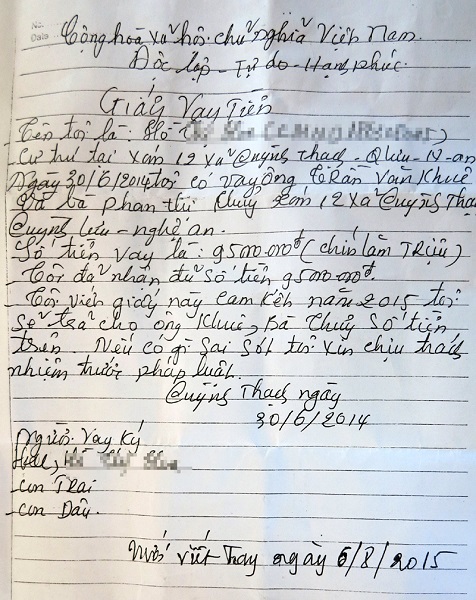 No.
Date
Cộng hoà xã hội chủ nghĩa Việt Nam.
Độc lập - Tự do - Hạnh phúc.
Giấy Vay Tiền
- Tên tôi là: Hồ
- Cư trú tại xóm 12 xã Quỳnh Thạch - Q lưu - N-an
Ngày 30/6/2014 tôi có vay ông Trần Văn Khuê
và bà phan thị thuỷ xóm 12 xã Quỳnh Thạch
Quỳnh lưu - nghệ an.
Số tiền vay là: 95000.000đ (chín lăm Triệu)
- Tôi đã nhận đủ số tiền 95000.000đ
- Tôi viết giấy này cam kết năm 2015 tôi
sẽ trả cho ông Khuê, Bà Thuỷ số tiền
trên. Nếu có gì sai sót tôi xin chịu trách
nhiệm trước pháp luật.
Quỳnh Thạch ngày
30/6/2014
Người Vay Ký
- con Trai
- con Dâu.
viết ngày 6/8/2015